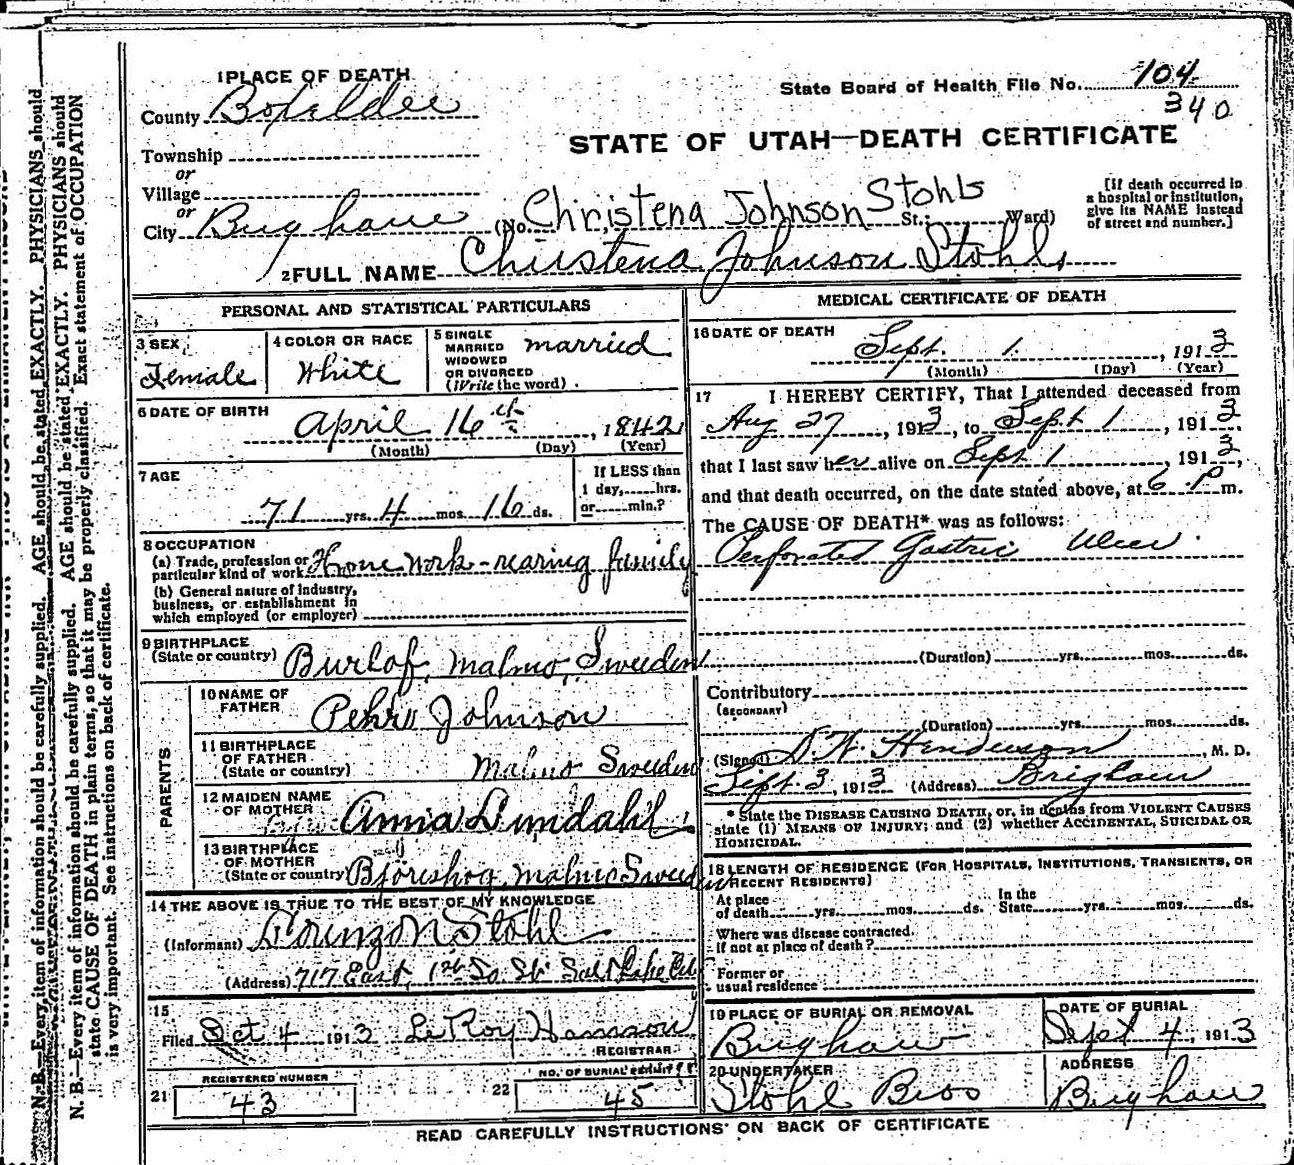 1 PLACE OF DEATH
County Boxelder
Township
or
Village
or
City Brigham
State Board of Health File No. 104
340
STATE OF UTAH—DEATH CERTIFICATE
(No. Christena Johnson Stohl St.; Ward)
[If death occurred in
a hospital or institution,
give its NAME instead
of street and number.]
2 FULL NAME Christena Johnson Stohl
PERSONAL AND STATISTICAL PARTICULARS
3 SEX
Female
4 COLOR OR RACE
White
5 SINGLE
MARRIED
WIDOWED
OR DIVORCED
(Write the word)
married
6 DATE OF BIRTH
April 16th, 1842
(Month) (Day) (Year)
7 AGE
71 yrs. 4 mos. 16 ds.
If LESS than
1 day, hrs.
or min.?
8 OCCUPATION
(a) Trade, profession or
particular kind of work Home work - rearing family
(b) General nature of industry,
business, or establishment in
which employed (or employer)
9 BIRTHPLACE
(State or country) Burlof, Malmo, Sweden
PARENTS
10 NAME OF
FATHER
Pehr Johnson
11 BIRTHPLACE
OF FATHER
(State or country)
Malmo Sweden
12 MAIDEN NAME
OF MOTHER
Anna Lundahl
13 BIRTHPLACE
OF MOTHER
(State or country) Bjoreshog, Malmo Sweden
14 THE ABOVE IS TRUE TO THE BEST OF MY KNOWLEDGE
(Informant) Lorinzon Stohl
(Address) 717 East, 1st So. St. Salt Lake City
15
Filed Oct 4 1913 LeRoy Hanson
REGISTRAR
REGISTERED NUMBER
21 43
NO. OF BURIAL PERMIT
22 45
MEDICAL CERTIFICATE OF DEATH
16 DATE OF DEATH
Sept. 1, 1913
(Month) (Day) (Year)
17 I HEREBY CERTIFY, That I attended deceased from
Aug 27, 1913, to Sept 1, 1913,
that I last saw her alive on Sept 1, 1913,
and that death occurred, on the date stated above, at 6 P m.
The CAUSE OF DEATH* was as follows:
Perforated Gastric Ulcer.
(Duration) yrs. mos. ds.
Contributory
(SECONDARY)
(Duration) yrs. mos. ds.
(Signed) Henderson, M. D.
Sept 3, 1913 (Address) Brigham
* State the DISEASE CAUSING DEATH, or, in deaths from VIOLENT CAUSES
state (1) MEANS OF INJURY; and (2) whether ACCIDENTAL, SUICIDAL OR
HOMICIDAL.
18 LENGTH OF RESIDENCE (FOR HOSPITALS, INSTITUTIONS, TRANSIENTS, OR
RECENT RESIDENTS)
At place
of death yrs. mos. ds. In the
State yrs. mos. ds.
Where was disease contracted,
if not at place of death?
Former or
usual residence
19 PLACE OF BURIAL OR REMOVAL
Brigham
DATE OF BURIAL
Sept 4, 1913
20 UNDERTAKER
Stohl Bros
ADDRESS
Brigham
READ CAREFULLY INSTRUCTIONS ON BACK OF CERTIFICATE
N. B.—Every item of information should be carefully supplied. AGE should be stated EXACTLY. PHYSICIANS should
N. B.—Every item of information should be carefully supplied. AGE should be stated EXACTLY. PHYSICIANS should
state CAUSE OF DEATH in plain terms, so that it may be properly classified. Exact statement of OCCUPATION
is very important. See instructions on back of certificate.